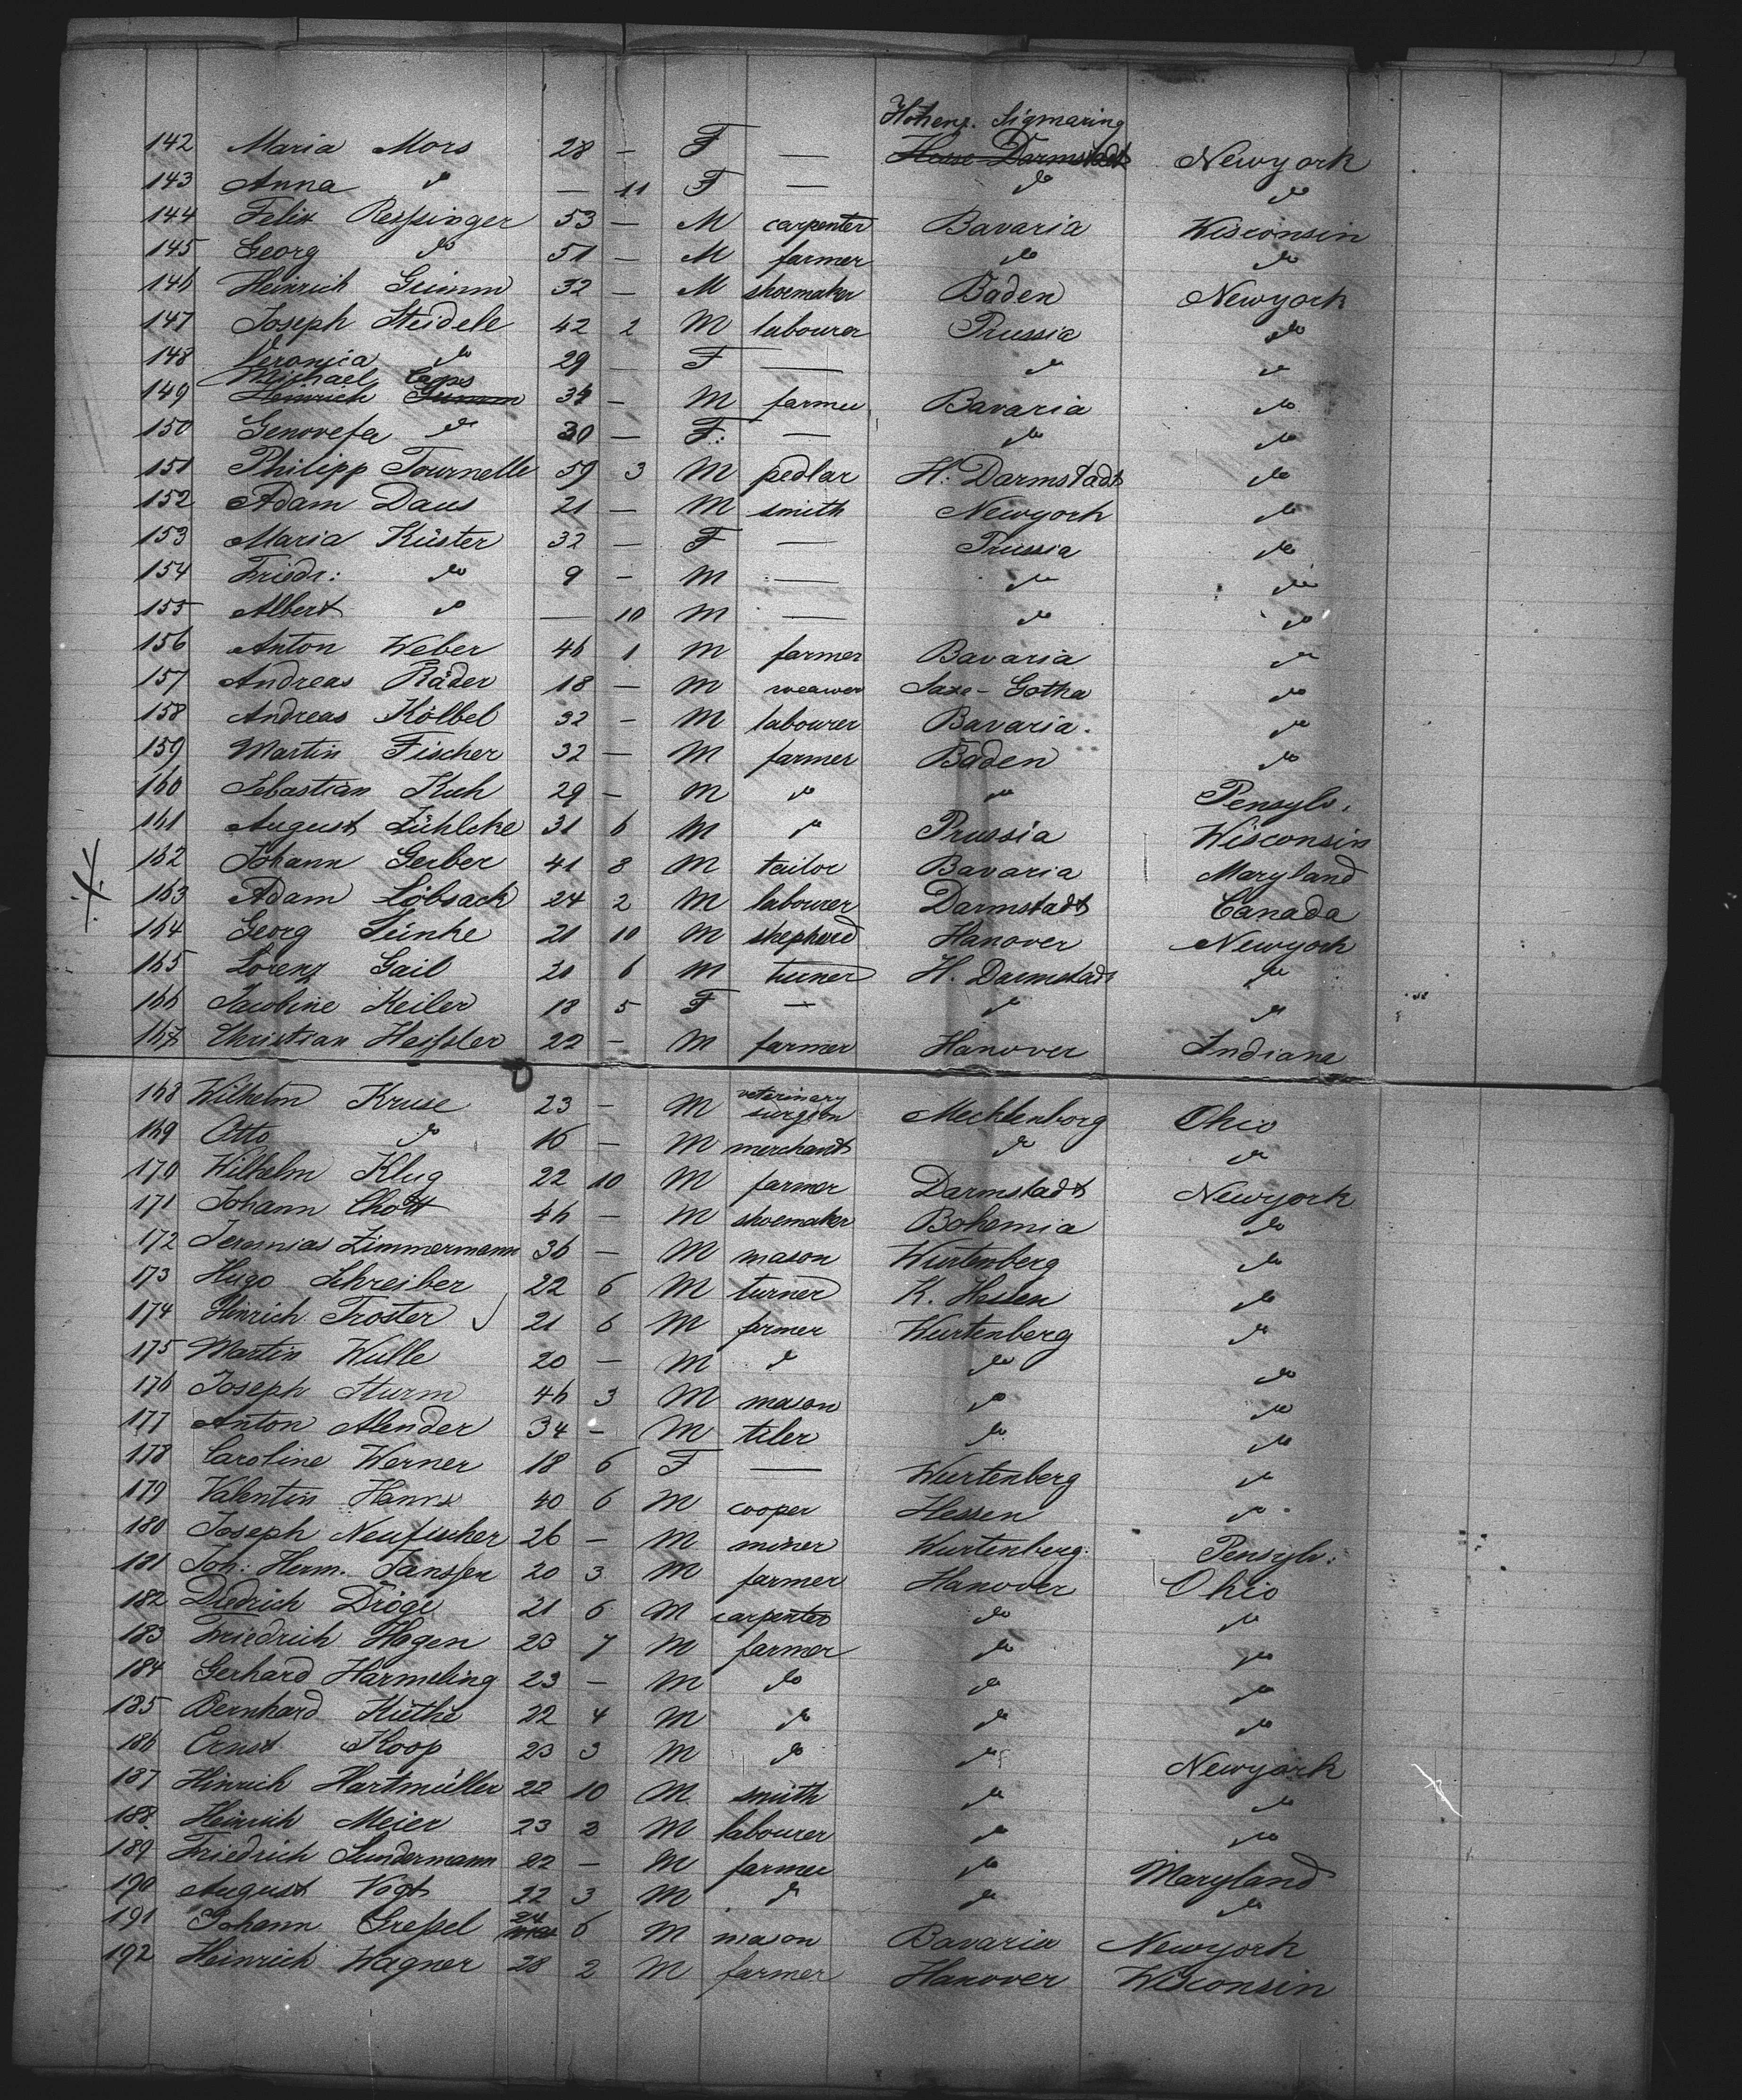 Hohenz. Sigmaring
142 Maria Mors 28 — F — Hesse Darmstadt Newyork
143 Anna do — 11 F — do do
144 Felix Ressinger 53 — M carpenter Bavaria Wisconsin
145 Georg do 51 — M farmer do do
146 Heinrich Grimm 32 — M shoemaker Baden Newyork
147 Joseph Steidele 42 2 M labourer Prussia do
148 Veronica do 29 F — do do
Michael Caps
149 Heinrich Grimm 34 — M farmer Bavaria do
150 Genovefa do 30 — F: — do do
151 Philipp Tournelle 59 3 M pedlar H. Darmstadt do
152 Adam Daus 21 — M smith Newyork do
153 Maria Küster 32 — F — Prussia do
154 Friedr: do 9 — M — do do
155 Albert do — 10 M — do do
156 Anton Weber 46 1 M farmer Bavaria do
157 Andreas Räder 18 — M weawer Saxe-Gotha do
158 Andreas Kölbel 32 — M labourer Bavaria. do
159 Martin Fischer 32 — M farmer Baden do
160 Sebastian Kuh 29 — M do do Pensylv.
161 August Zühlcke 31 6 M do Prussia Wisconsin
162 Johann Gerber 41 8 M tailor Bavaria Maryland
163 Adam Löbsack 24 2 M labourer Darmstadt Canada
164 Georg Sünke 21 10 M shepherd Hanover Newyork
165 Lorenz Gail 20 6 M turner H. Darmstadt do
166 Jacobine Keiler 18 5 F — do do
167 Christian Heissler 22 — M farmer Hanover Indiana
168 Wilhelm Kruse 23 — M veterinary surgeon Mecklenborg Ohio
169 Otto do 16 — M merchant do do
170 Wilhelm Klug 22 10 M farmer Darmstadt Newyork
171 Johann Chott 46 — M shoemaker Bohemia do
172 Jeremias Zimmermann 36 — M mason Wurtenberg do
173 Hugo Schreiber 22 6 M turner K. Hessen do
174 Hinrich Troster 21 6 M farmer Wurtenberg do
175 Martin Wulle 20 — M do do do
176 Joseph Sturm 46 3 M mason do do
177 Anton Alender 34 — M tiler do do
178 Caroline Werner 18 6 F — Wurtenberg do
179 Valentin Hanns 40 6 M cooper Hessen do
180 Joseph Neufischer 26 — M miner Wurtenberg. Pensylv:
181 Joh: Herm. Janssen 20 3 M farmer Hanover Ohio
182 Diedrich Dröge 21 6 M carpenter do do
183 Friedrich Hagen 23 7 M farmer do do
184 Gerhard Harmeling 23 — M do do do
185 Bernhard Küthe 22 4 M do do do
186 Ernst Koop 23 3 M do do Newyork
187 Hinrich Hartmüller 22 10 M smith do do
188 Heinrich Meier 23 2 M labourer do do
189 Friedrich Sundermann 22 — M farmer do Maryland
190 August Vogt 22 3 M do do do
191 Johann Gressel 24 6 M mason Bavaria Newyork
192 Heinrich Wagner 28 2 M farmer Hanover Wisconsin